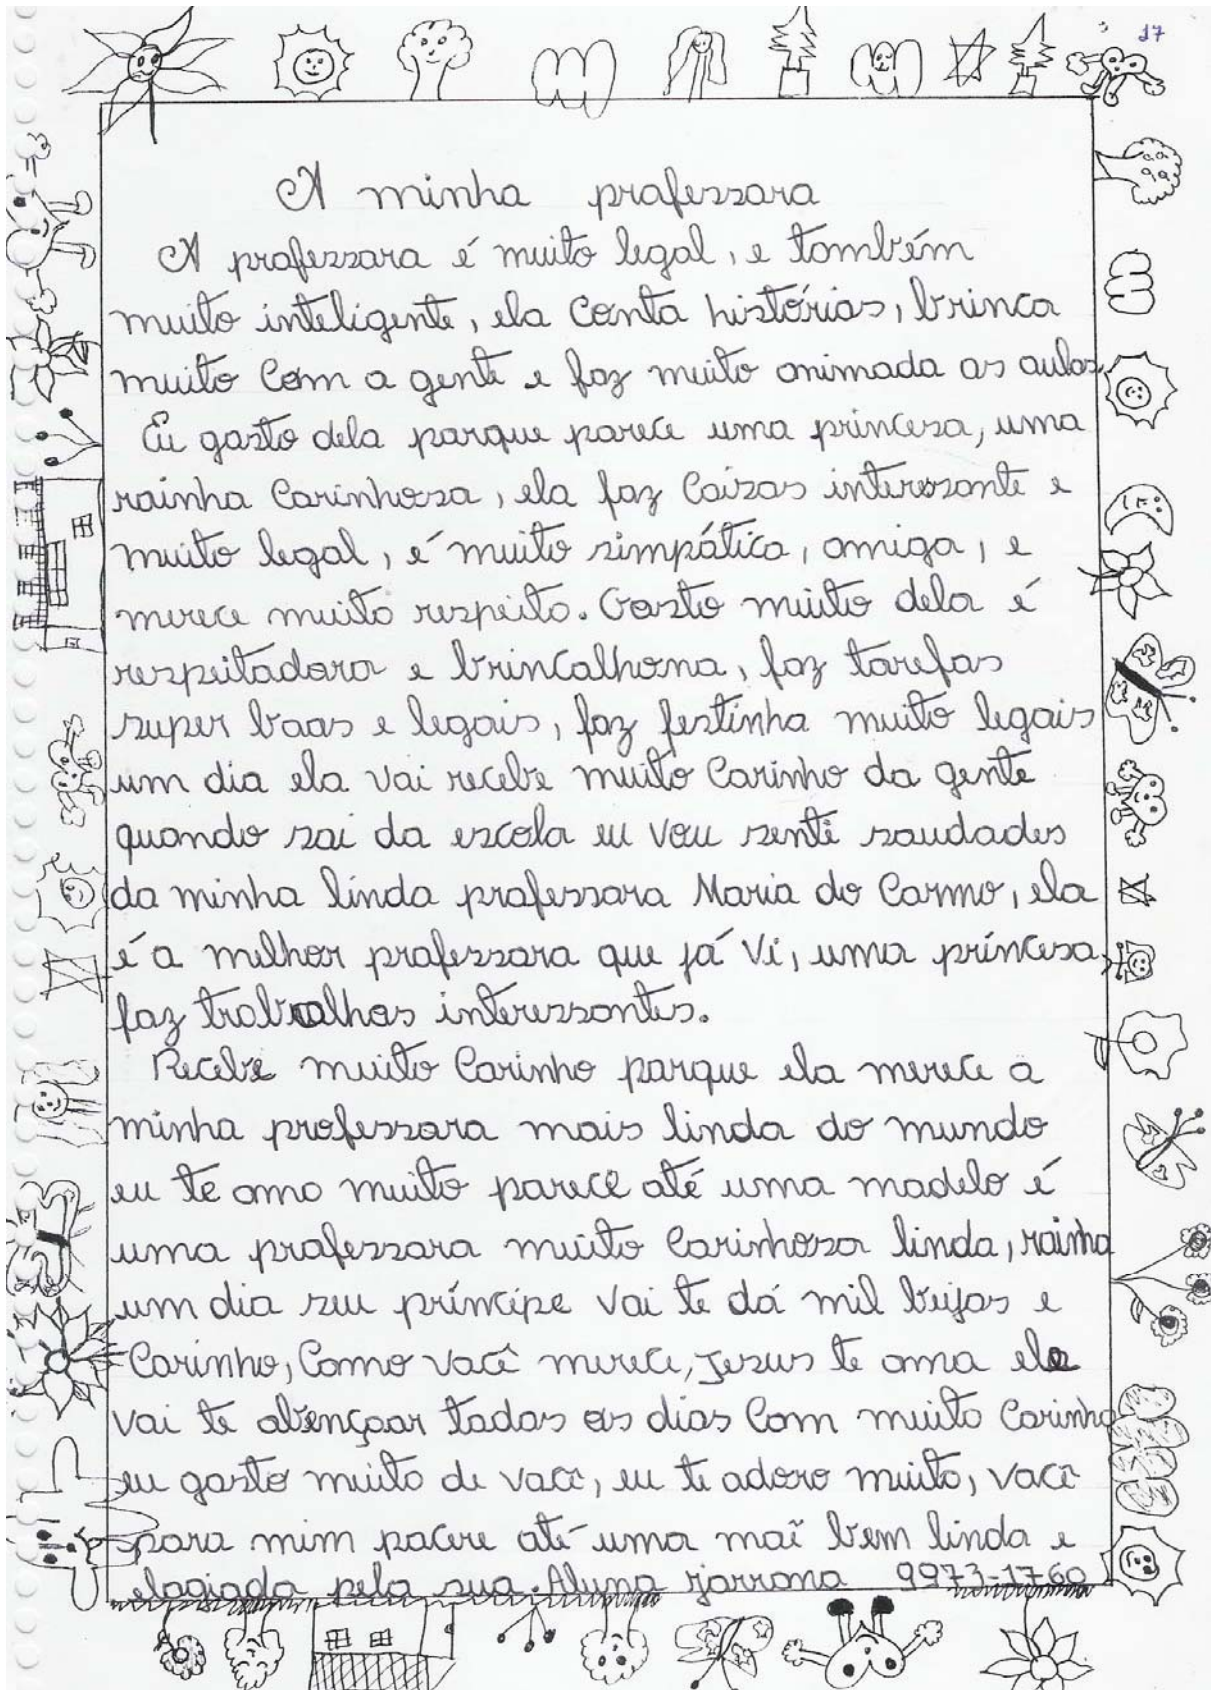 17
A minha professora
A professora é muito legal, e também
muito inteligente, ela conta histórias, brinca
muito com a gente e faz muito animada as aulas.
Eu gosto dela porque parece uma princesa, uma
rainha carinhosa, ela faz coisas interessante e
muito legal, é muito simpática, amiga, e
merece muito respeito. Gosto muito dela é
respeitadora e brincalhona, faz tarefas
super boas e legais, faz festinha muito legais
um dia ela vai recebe muito carinho da gente
quando sai da escola eu vou senti saudades
da minha linda professora Maria do Carmo, ela
é a melhor professora que já vi, uma princesa,
faz trabalhos interessantes.
Recebe muito carinho porque ela merece a
minha professora mais linda do mundo
eu te amo muito parece até uma modelo é
uma professora muito carinhosa linda, rainha
um dia seu príncipe vai te dá mil beijos e
carinho, como você merece, Jesus te ama ele
vai te abençoar todos os dias com muito carinho
eu gosto muito de você, eu te adoro muito, você
para mim pacere até uma maĩ bem linda e
elogiada pela sua. Aluna jorrana 9973-1760